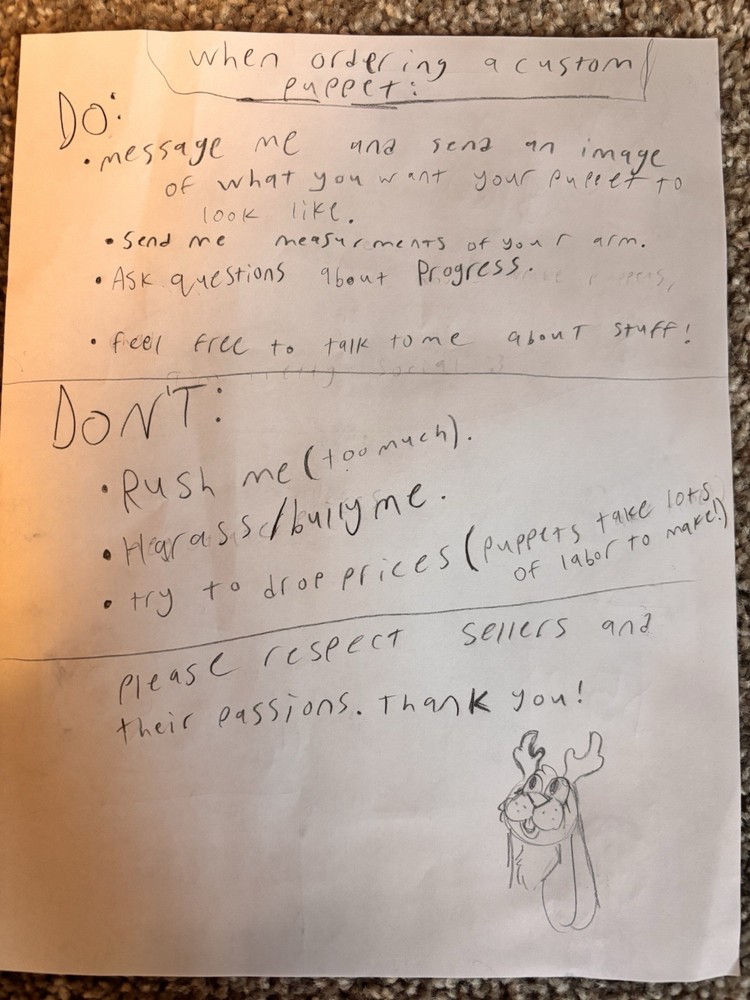 when ordering a custom
puppet:
DO:
• message me and send an image
of what you want your puppet to
look like.
• Send me measurments of your arm.
• Ask questions about Progress.
• feel free to talk to me about stuff!
DON'T:
• Rush me (too much).
• Harass/bully me.
• try to drop prices (puppets take lots
of labor to make!)
please respect sellers and
their passions. Thank you!